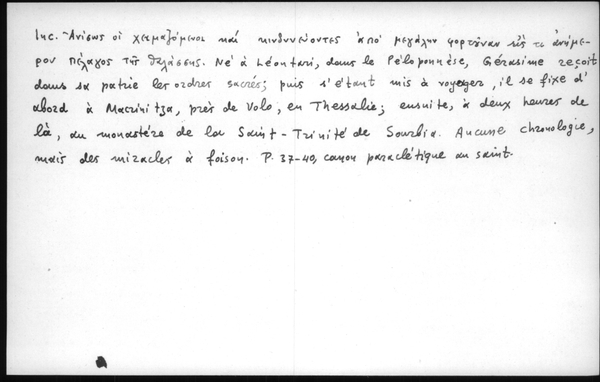 Inc. Ἀνίσως οἱ χειμαζόμενοι καὶ κινδυνεύοντες ἀπὸ μεγάλην φορτοῦναν εἰς τὸ ἀνήμε-
ρον πέλαγος τῆς θαλάσσης. Né à Léontari, dans le Péloponnèse, Gérasime reçoit
dans sa patrie les ordres sacrés; puis s'étant mis à voyager, il se fixe d'
abord à Macrinitza, près de Volo, en Thessalie; ensuite, à deux heures de
là, au monastère de la Saint-Trinité de Sourbia. Aucune chronologie,
mais des miracles à foison. P. 37-40, canon paraclétique au saint.